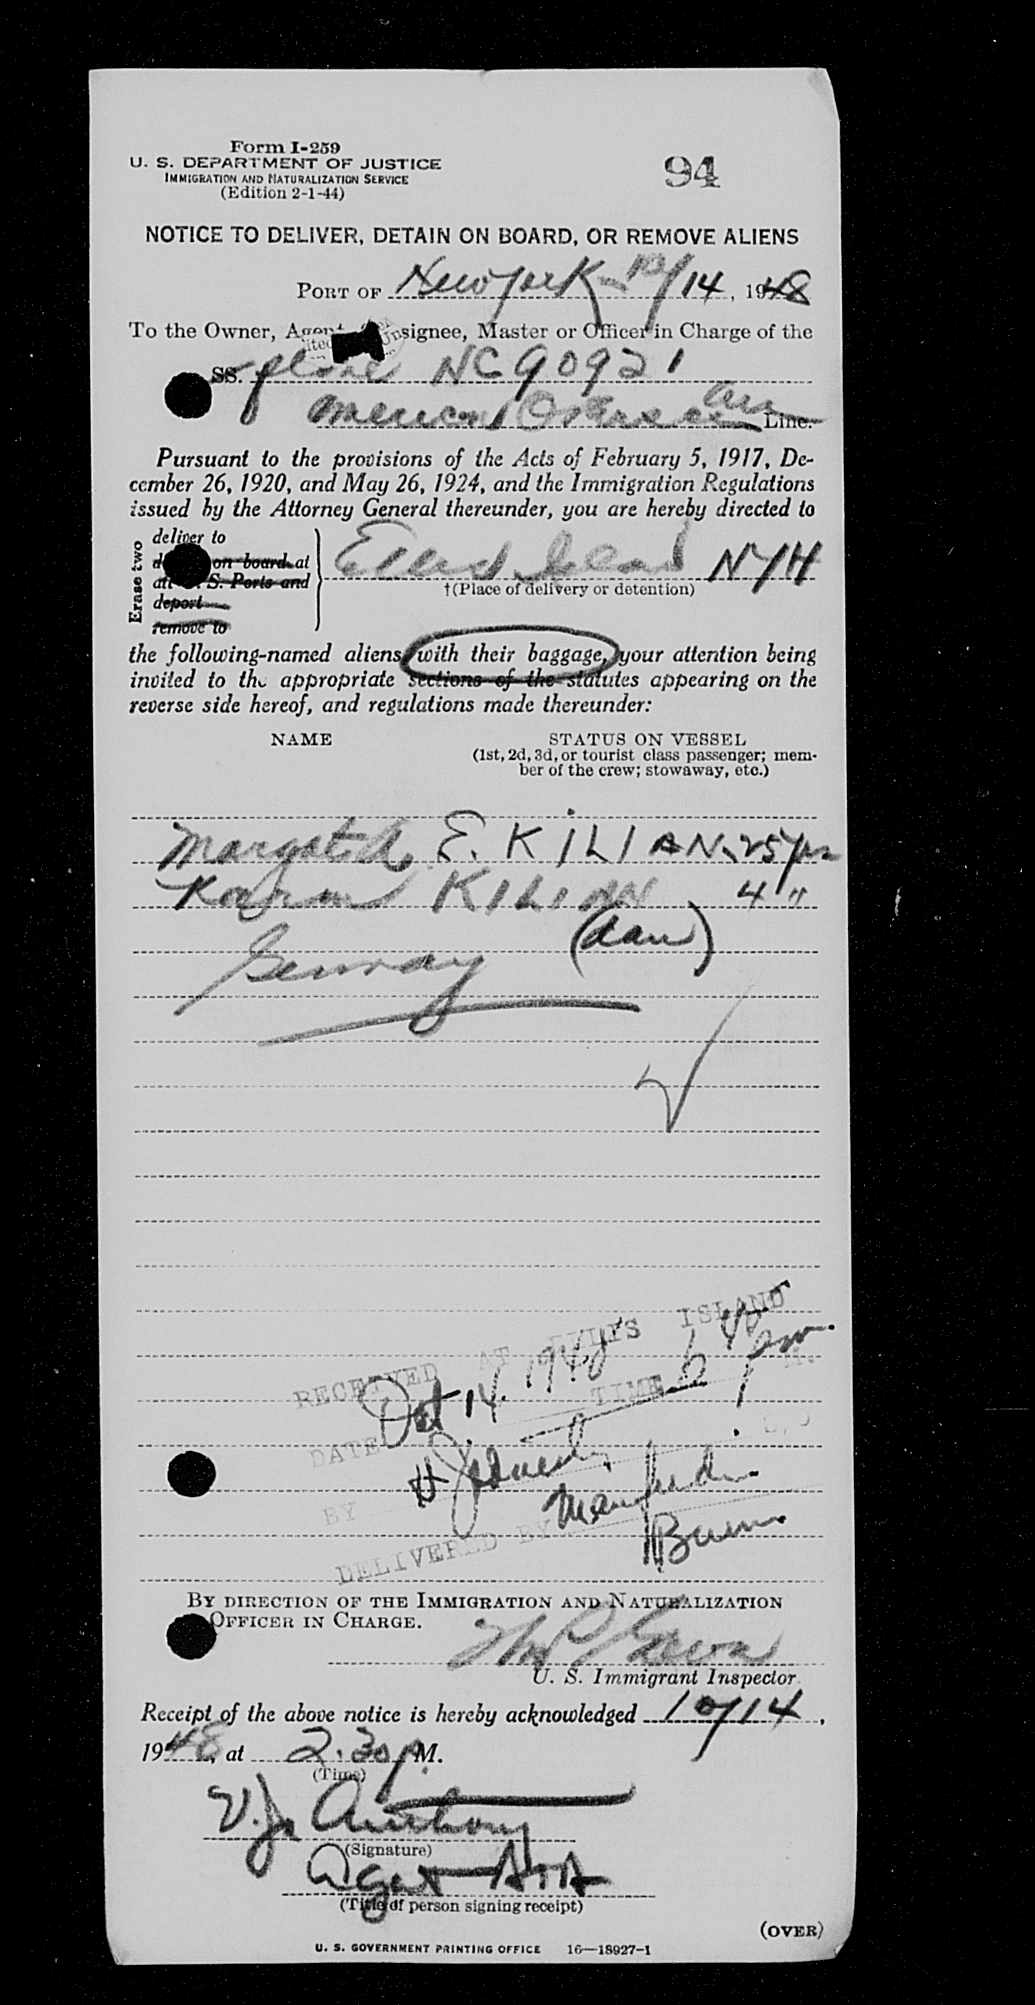 Form I-259
U. S. DEPARTMENT OF JUSTICE
IMMIGRATION AND NATURALIZATION SERVICE
(Edition 2-1-44)
94
NOTICE TO DELIVER, DETAIN ON BOARD, OR REMOVE ALIENS
PORT OF New York 10/14, 1948
To the Owner, Agent, Consignee, Master or Officer in Charge of the
SS. plane NC 90921
American Overseas Air Line.
Pursuant to the provisions of the Acts of February 5, 1917, De-
cember 26, 1920, and May 26, 1924, and the Immigration Regulations
issued by the Attorney General thereunder, you are hereby directed to
Erase two
deliver to
on board at
S. Ports and
deport
remove to
Ellis Island NYH
†(Place of delivery or detention)
the following-named aliens with their baggage, your attention being
invited to the appropriate sections of the statutes appearing on the
reverse side hereof, and regulations made thereunder:
NAME
STATUS ON VESSEL
(1st, 2d, 3d, or tourist class passenger; mem-
ber of the crew; stowaway, etc.)
E. KILIAN 25 yrs
KILIAN 4 "
(dau)
RECEIVED AT ELLIS ISLAND
DATE Oct 14 1948 TIME pm
BY
DELIVERED BY
BY DIRECTION OF THE IMMIGRATION AND NATURALIZATION
OFFICER IN CHARGE.
U. S. Immigrant Inspector.
Receipt of the above notice is hereby acknowledged 10/14,
1948, at 2.30 p M.
(Time)
V. Jr Anthony
(Signature)
Agent AOA
(Title of person signing receipt)
(OVER)
U. S. GOVERNMENT PRINTING OFFICE 16—18927-1